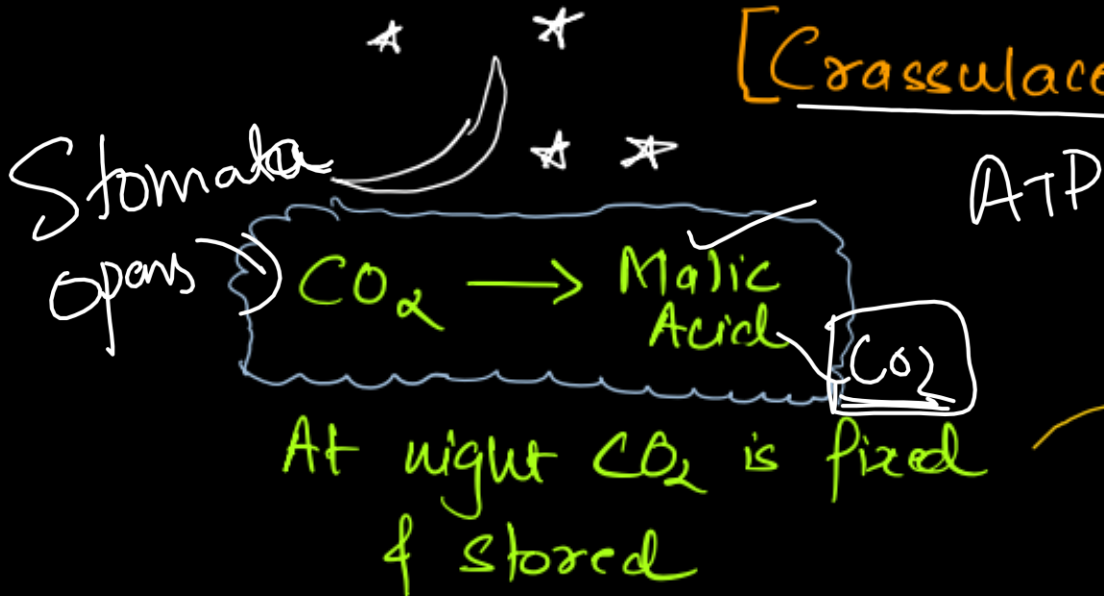 [Crassulace
Stomata
opens
ATP
CO2 → Malic
Acid
CO2
At night CO2 is fixed
& stored